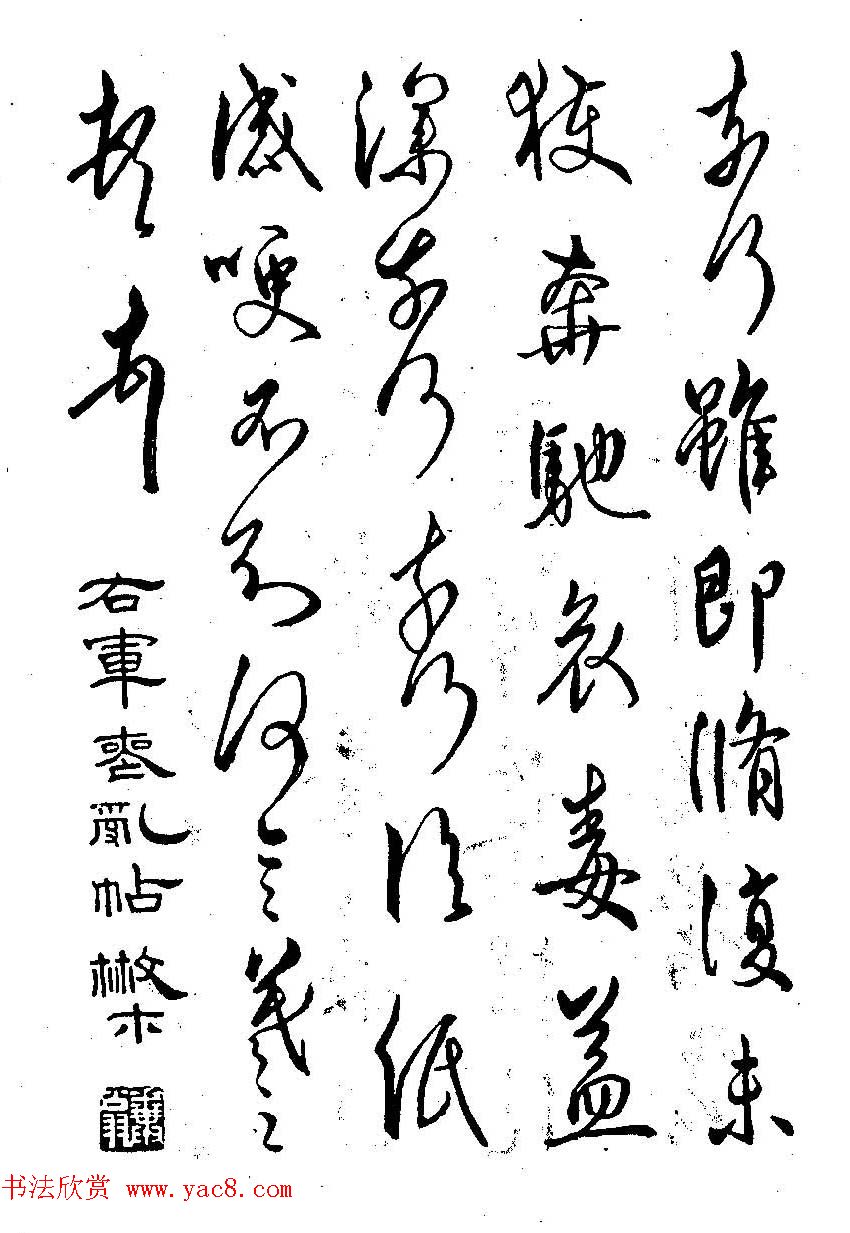 奈何雖即脩復未
獲奔馳哀毒益
深奈何奈何臨紙
感哽不知何言羲之
頓首
右軍喪亂帖 樊
书法欣赏 www.yac8.com